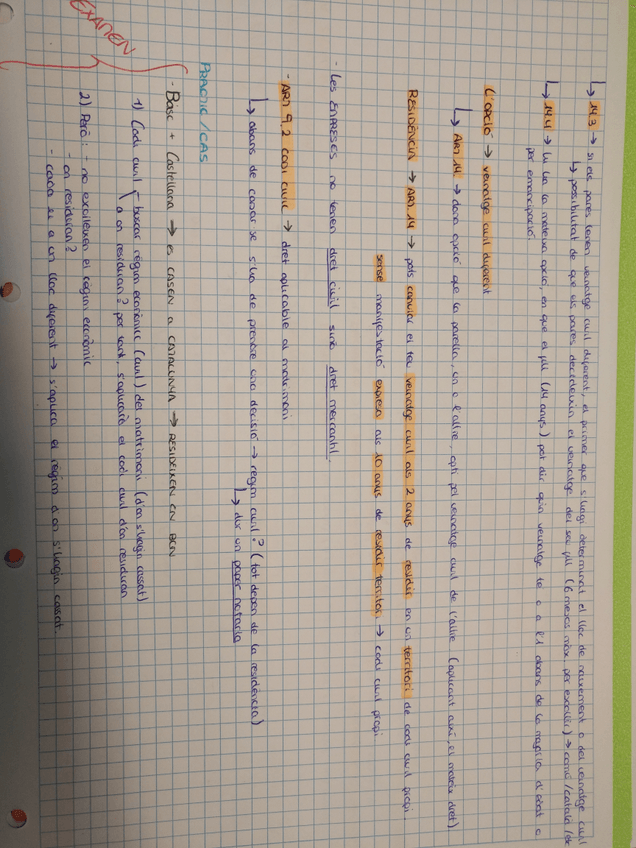 ↳ 14.3 → si els pares tenen veinatge civil diferent, el primer que s'hagi determinat el lloc de naixement o del veinatge civil
↳ possibilitat de que els pares decideixin el veinatge del seu fill (6 mesos màx. per escollir) → comú / català /
↳ 14.4 → hi ha la mateixa opció, en que el fill (14 anys) pot dir quin veinatge te o a l'1 abans de la majoria d'edat o
per emancipació.
L'opció → veinatge civil diferent
↳ ART. 14 → dona opció que la parella, un o l'altre, opti pel veinatge civil de l'altre (aplicant així, el mateix dret)
RESIDÈNCIA → ART. 14 → pots canviar el teu veinatge civil als 2 anys de residir en un territori de codi civil propi
sense manifestació expresa als 10 anys de residir territori → codi civil propi
- Les EMPRESES no tenen dret civil sinó dret mercantil.
- ART 9.2 codi civil → dret aplicable al matrimoni
↳ abans de casar-se s'ha de prendre una decisió → regim civil? (tot depen de la residència)
↳ dur un paper notarial
PRÀCTIC / CAS
- Basc + Castellana → es casen a CATALUNYA → RESIDEIXEN EN BCN
EXAMEN
1) Codi civil - buscar règim econòmic (civil) del matrimoni (d'on s'hagin casat)
a on residiran? per tant, s'aplicarà el codi civil d'on residiran
2) Però: - no escolleixen el regim econòmic
- on residiran?
- cada si a un lloc diferent → s'aplica el regim d'on s'hagin casat.